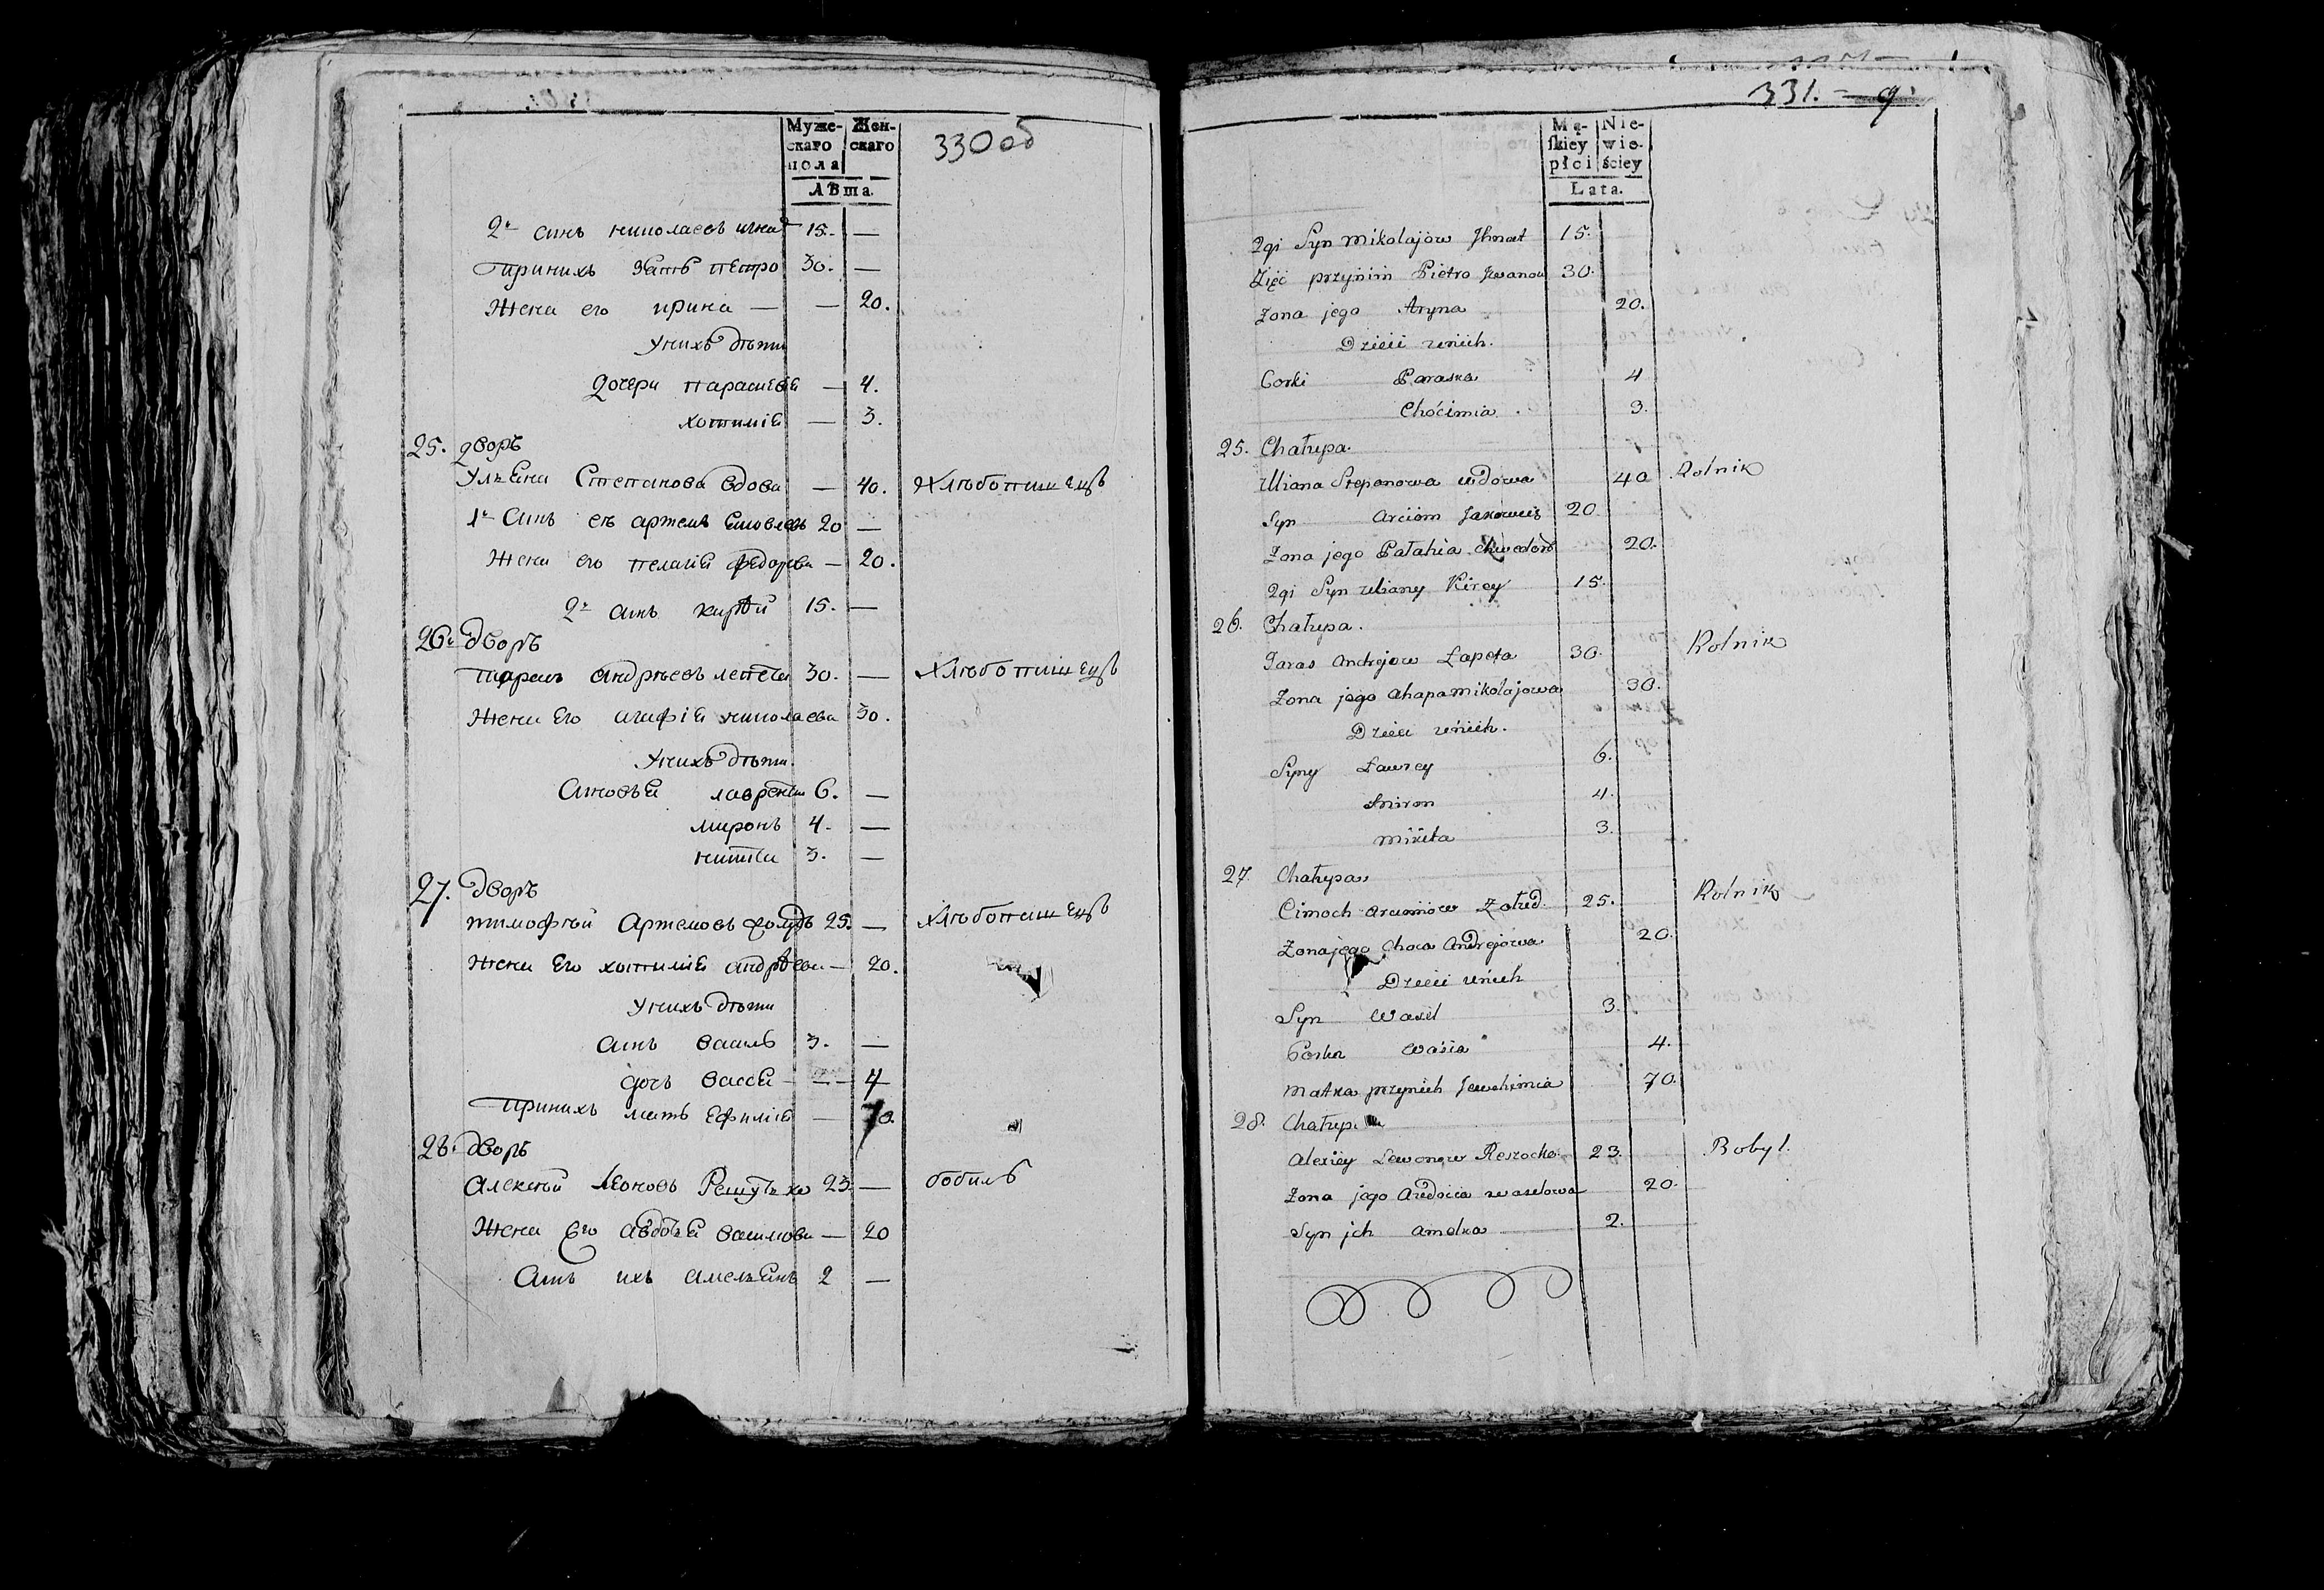 330 об
Муже-
скаго
пола
Жен-
скаго
Лѣта.
2й синъ николаевъ игнат 15. —
Принихъ зать петро 30. —
Жена его ирина — — 20.
Унихъ дѣти
дочери парасиевіе — 4.
хотиміе — 3.
25. дворъ
Ульена Степанова вдова — 40. Хлѣбопашецъ
1й Синъ еѣ артемъ емовлевъ 20 —
Жена его пелагіе федорова — 20.
2й синъ кирѣй 15. —
26. дворъ
тарасъ андрѣевъ лепета 30. — Хлѣбопашецъ
Жена Его агафіе николаева 30.
Унихъ дѣти.
Синовье лаврентіи 6. —
миронъ 4. —
никита 3. —
27. дворъ
тимофѣй Артемовъ 25. — Хлѣбопашецъ
Жена Его хотиміе андрѣева — 20.
Унихъ дѣти
Синъ василь 3. —
дочъ васса — — 4
Принихъ мать Ефиміе — 70.
28. дворъ
Алексѣй Леоновъ 23. — бобиль
Жена Его авдотьа василова — 20
Синъ ихъ амельенъ 2 —
331. — 9.
Mę-
skiey
płci
Nie-
wie-
ściey
Lata.
2gi Syn Mikołajow Jhnat 15.
Zięć przynim Pietro Jwanow 30.
Zona jego Aryna 20.
Dzieci unich.
Corki Paraska 4
Chócimia. 3.
25. Chałupa.
Uliana Stepanowa wdowa 40 Rolnik
Syn Arciom Jakowew 20.
Zona jego Pałahia Chwedoro 20.
2gi Syn Uliany Kirey 15.
26. Chałupa.
Taras Andrejow Łapeta 30. Rolnik
Zona jego Ahapa Mikołajowa 30.
Dzieci unich.
Syny Ławrey 6.
Miron 4.
Mikita 3.
27. Chałupa
Cimoch Arciomow Zołud. 25. Rolnik
Zona jego Chocia Andrejowa 20.
Dzieci unich
Syn Wasil 3.
Corka Wasia 4.
Matka przynich Jewchimia 70.
28. Chałupa
Alexiey Lewonow Reszocko 23. Bobyl.
Zona jego Awdocia Wasilowa 20.
Syn jch Amelka 2.